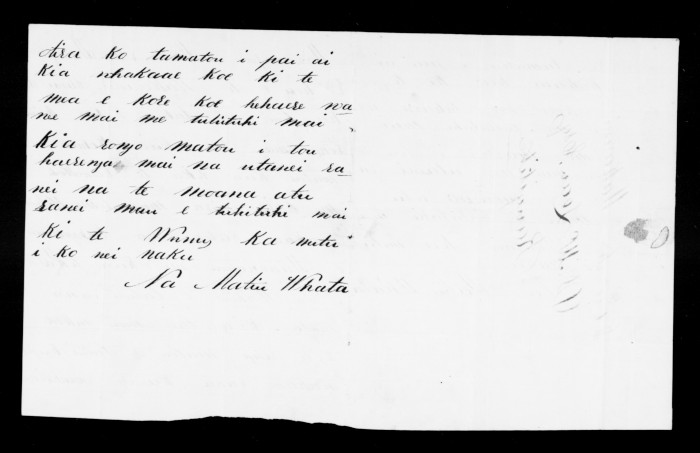 Aira ko tamatou i pai ai
Kia whakaae koe ki te
mea e kore koe hehaere ra
ne mai me tuhituhi mai
Kia rongo matou i tou
haerenga mai na utanei ra
nei na te moana atu
ranei mau e tuhituhi mai
Ki te ka mutu
i ko nei naku
Na Matiu Whata